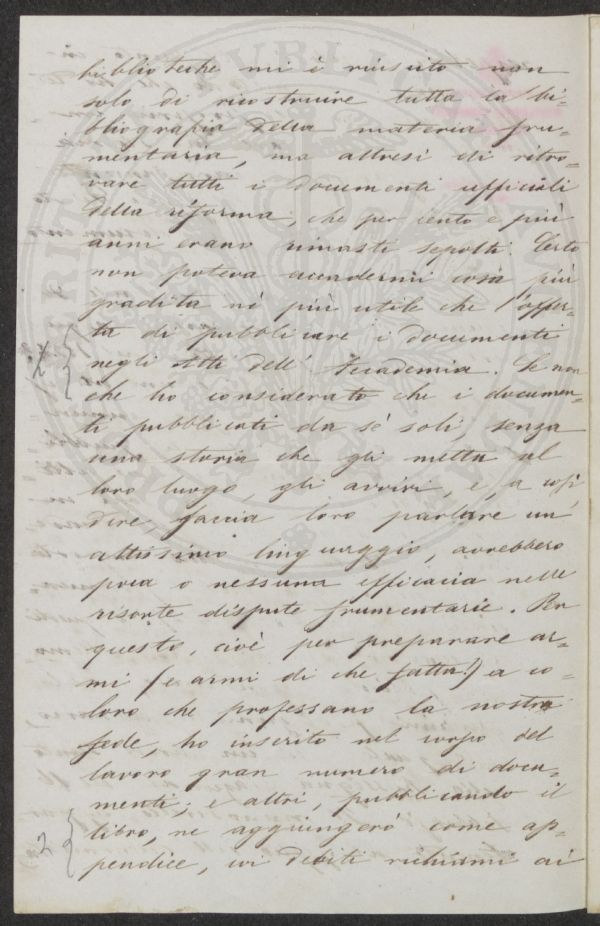 biblioteche mi è riuscito non
solo di ricostruire tutta la bi=
bliografia della materia fru=
mentaria, ma altresì di ritro=
vare tutti i documenti ufficiali
della riforma, che per cento e più
anni erano rimasti sepolti. Certo
non poteva accadermi cosa più
gradita nè più utile che l'offer=
ta di pubblicare i documenti
negli Atti dell' Accademia. Se non
che ho considerato che i documen=
ti pubblicati da sè soli, senza
una storia che gli metta al
loro luogo, gli avvivi, e, a così
dire, faccia loro parlare un
altissimo linguaggio, avrebbero
poca o nessuna efficacia nelle
risorte dispute frumentarie. Per
questo, cioè per preparare ar=
mi (e armi di che fatta!) a co=
loro che professano la nostra
fede, ho inserito nel corpo del
lavoro gran numero di docu=
menti; e altri, pubblicando il
2 libro, ne aggiungerò come ap=
pendice, coi debiti richiami ai